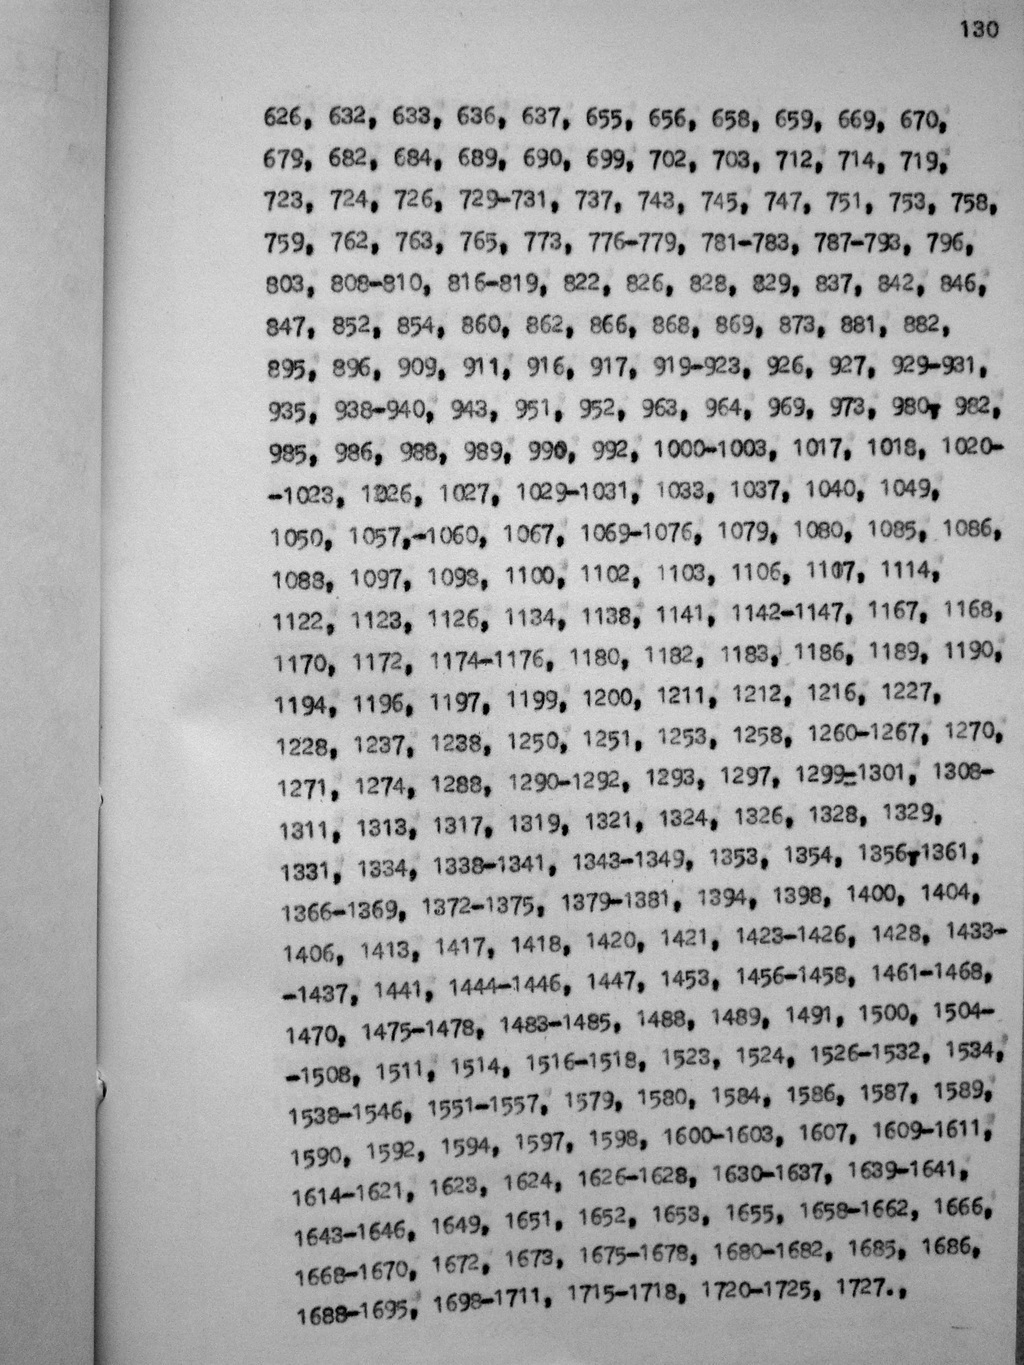 130
626, 632, 633, 636, 637, 655, 656, 658, 659, 669, 670,
679, 682, 684, 689, 690, 699, 702, 703, 712, 714, 719,
723, 724, 726, 729-731, 737, 743, 745, 747, 751, 753, 758,
759, 762, 763, 765, 773, 776-779, 781-783, 787-793, 796,
803, 808-810, 816-819, 822, 826, 828, 829, 837, 842, 846,
847, 852, 854, 860, 862, 866, 868, 869, 873, 881, 882,
895, 896, 909, 911, 916, 917, 919-923, 926, 927, 929-931,
935, 938-940, 943, 951, 952, 963, 964, 969, 973, 980, 982,
985, 986, 988, 989, 990, 992, 1000-1003, 1017, 1018, 1020-
-1023, 1026, 1027, 1029-1031, 1033, 1037, 1040, 1049,
1050, 1057,-1060, 1067, 1069-1076, 1079, 1080, 1085, 1086,
1088, 1097, 1098, 1100, 1102, 1103, 1106, 1107, 1114,
1122, 1123, 1126, 1134, 1138, 1141, 1142-1147, 1167, 1168,
1170, 1172, 1174-1176, 1180, 1182, 1183, 1186, 1189, 1190,
1194, 1196, 1197, 1199, 1200, 1211, 1212, 1216, 1227,
1228, 1237, 1238, 1250, 1251, 1253, 1258, 1260-1267, 1270,
1271, 1274, 1288, 1290-1292, 1293, 1297, 1299-1301, 1308-
1311, 1313, 1317, 1319, 1321, 1324, 1326, 1328, 1329,
1331, 1334, 1338-1341, 1343-1349, 1353, 1354, 1356,1361,
1366-1369, 1372-1375, 1379-1381, 1394, 1398, 1400, 1404,
1406, 1413, 1417, 1418, 1420, 1421, 1423-1426, 1428, 1433-
-1437, 1441, 1444-1446, 1447, 1453, 1456-1458, 1461-1468,
1470, 1475-1478, 1483-1485, 1488, 1489, 1491, 1500, 1504-
-1508, 1511, 1514, 1516-1518, 1523, 1524, 1526-1532, 1534,
1538-1546, 1551-1557, 1579, 1580, 1584, 1586, 1587, 1589,
1590, 1592, 1594, 1597, 1598, 1600-1603, 1607, 1609-1611,
1614-1621, 1623, 1624, 1626-1628, 1630-1637, 1639-1641,
1643-1646, 1649, 1651, 1652, 1653, 1655, 1658-1662, 1666,
1668-1670, 1672, 1673, 1675-1678, 1680-1682, 1685, 1686,
1688-1695, 1698-1711, 1715-1718, 1720-1725, 1727.,